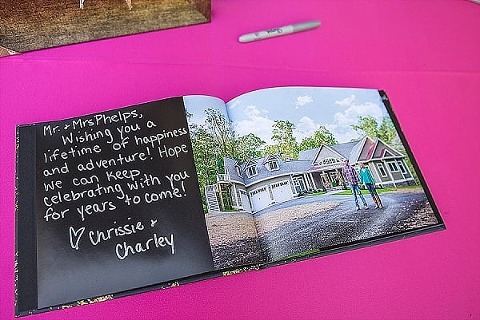 Mr. + Mrs Phelps,
Wishing you a
lifetime of happiness
and adventure! Hope
we can keep
celebrating with you
for years to come!
♡ Chrissie +
Charley